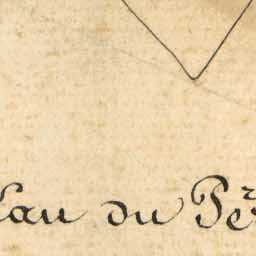 lan du Pé